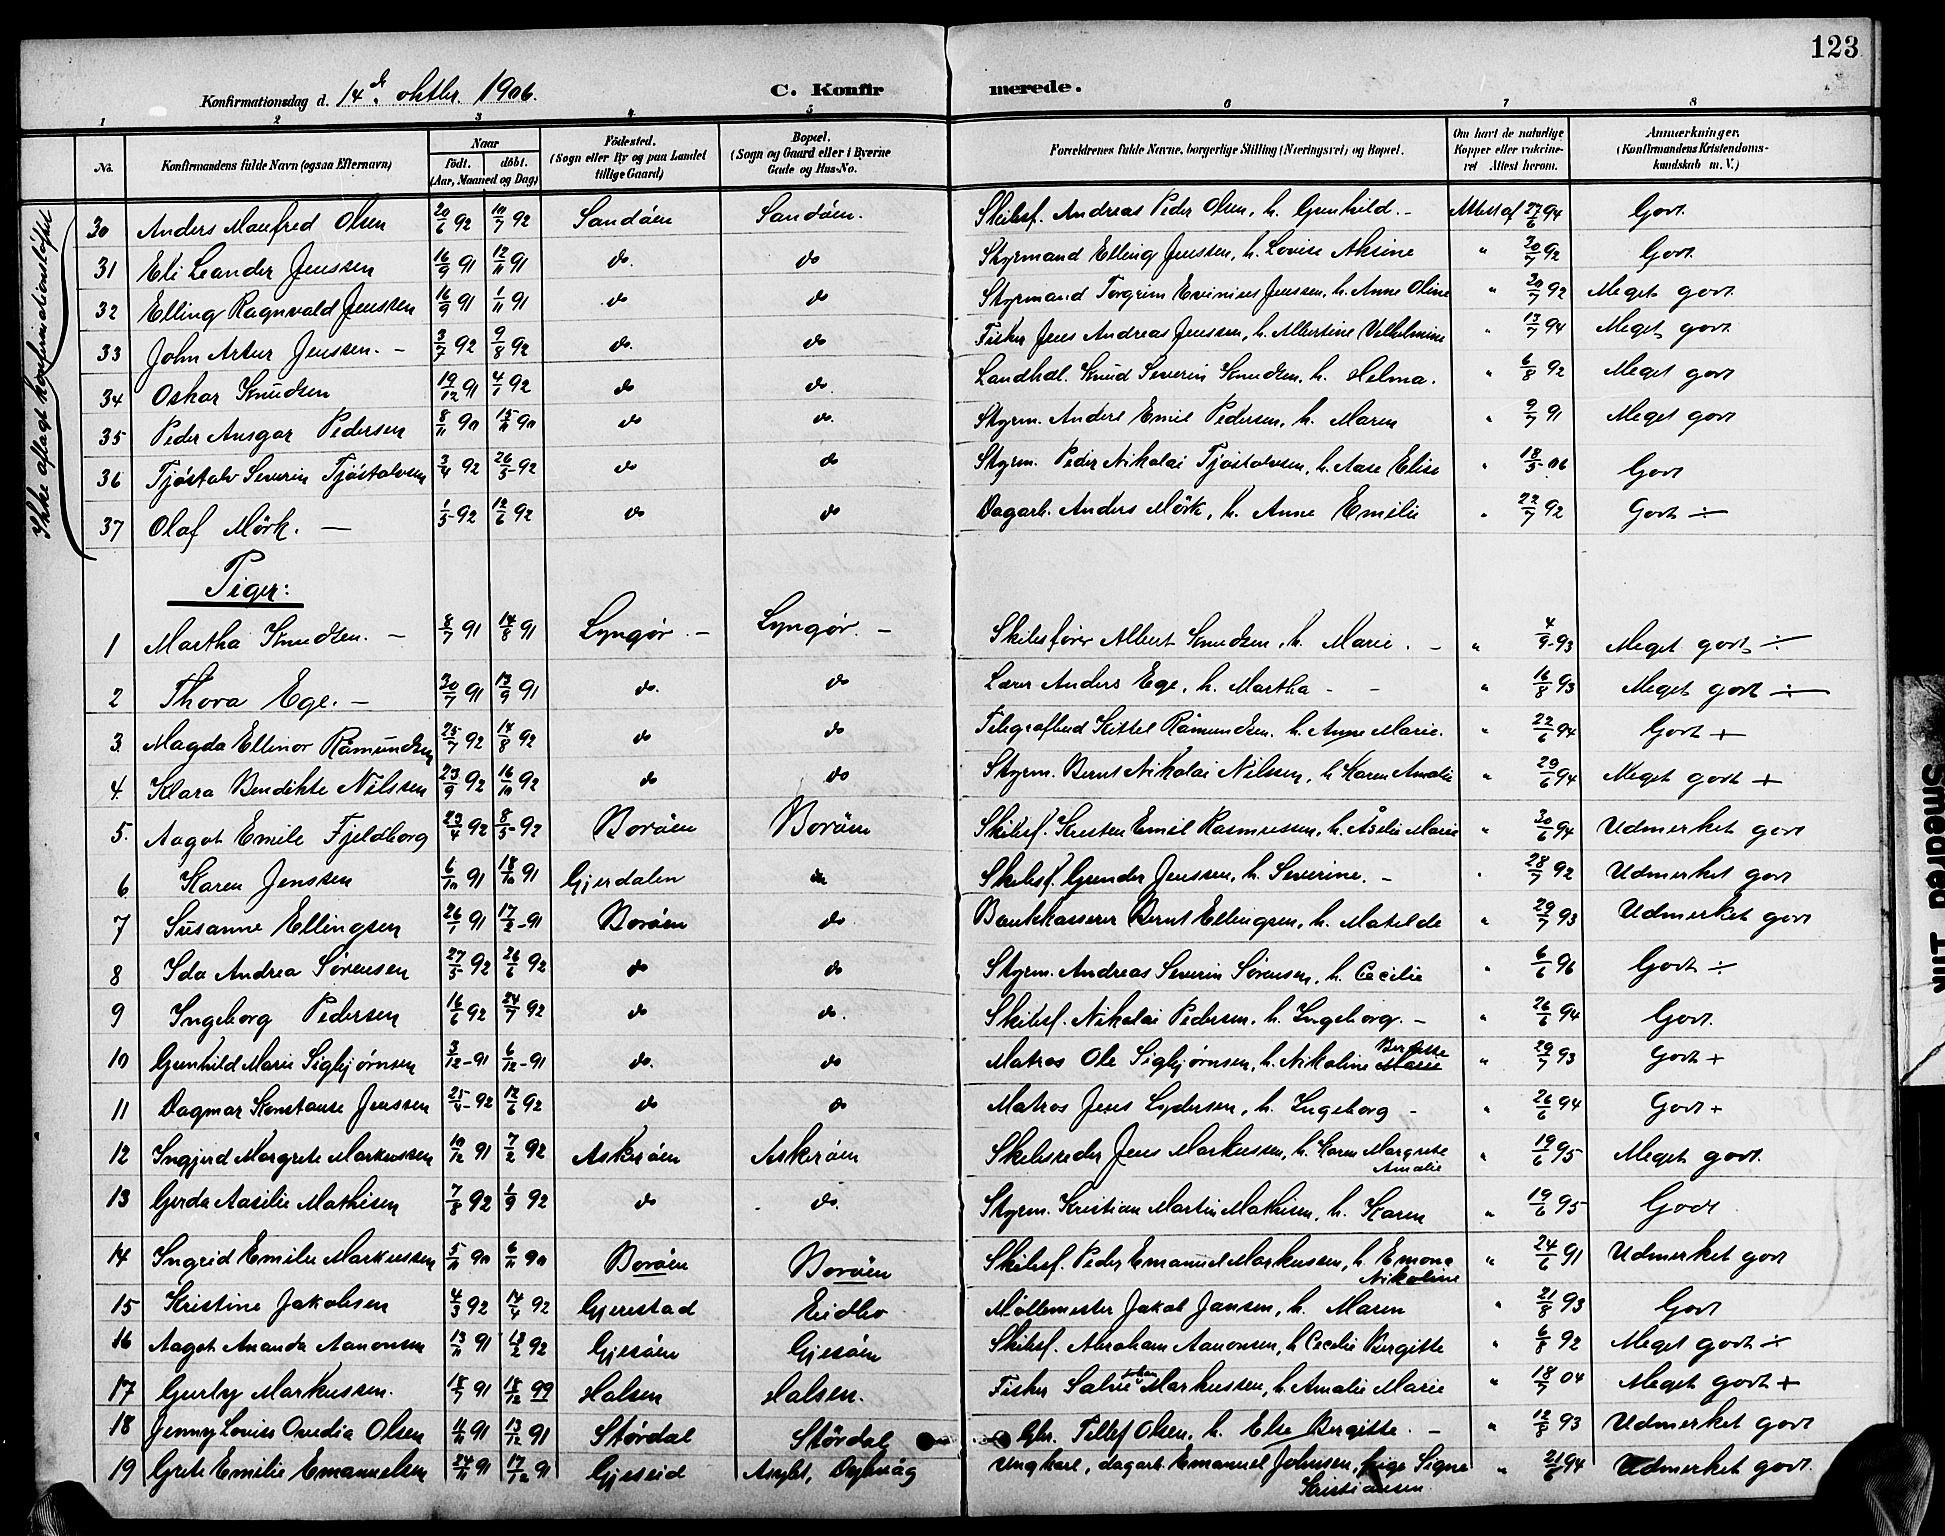 123
Konfirmationsdag d. 14de oktbr. 1906. C. Konfirmerede.
1 2 3 4 5 6 7 8
No. Konfirmandens fulde Navn (ogsaa Efternavn) Naar födt. döbt. (Aar, Maaned og Dag) Födested. (Sogn eller By og paa Landet tillige Gaard) Bopæl. (Sogn og Gaard eller i Byerne Gade og Hus-No. Forældrenes fulde Navne, borgerlige Stilling (Næringsvei) og Bopæl. Om havt de naturlige Kopper eller vakcineret Attest herom. Anmærkninger. (Konfirmandens Kristendomskundskab m. V.)
Ikke aflagt konfirmationsløftet
30 Anders Manfred Olsen 20/6 92 10/7 92 Sandöen Sandöen. Skibsf. Andreas Peder Olsen, h. Gunhild. - Attest af 27/6 94 Godt.
31 Eli Leander Jenssen 16/9 91 12/11 91 do. do Styrmand Elling Jenssen, h. Lovise Aksine " 20/7 92 Godt.
32 Elling Ragnvald Jenssen 16/9 91 1/11 91 do do Styrmand Torgrim Jenssen, h. Anne Oline " 20/7 92 Meget godt.
33 John Artur Jenssen. - 3/7 92 9/8 92 do. do Fisker Jens Andreas Jenssen, h. Albertine Vilhelmine " 13/7 94 Meget godt.
34 Oskar Knudsen 19/12 91 4/1 92 do do. Landhdl. Knud Severin Knudsen, h. Helma. " 6/8 92 Meget godt
35 Peder Ansgar Pedersen 8/11 90 15/11 90 do do. Styrm. Anders Emil Pedersen, h. Maren " 9/7 91 Meget godt
36 Tjöstolv Severin Tjöstolvsen 3/4 92 26/5 92 do do Styrm. Peder Nikolai Tjöstolvsen, h. Aase Elise " 18/5 06 Godt
37 Olaf Mörk. — 1/5 92 12/6 92 do do Dagarb. Anders Mörk, h. Anne Emilie " 22/7 92 Godt ÷
Piger:
1 Martha Knudsen. - 8/7 91 14/8 91 Lyngör. - Lyngör. - Skibsfører Albert Knudsen, h. Marie. - " 4/9 93 Meget godt ÷
2 Thora Ege. - 30/7 91 13/9 91 do. do Lærer Anders Ege, h. Martha - - " 16/8 93 Meget godt ÷
3. Magda Ellinor Råmundsen 25/7 92 14/8 92 do do Telegrafbud Kittel Råmundsen. h. Anne Marie. " 22/6 94 Godt +
4. Klara Bendikte Nilssen 23/9 92 16/10 92 do do Styrm. Bernt Nikolai Nilssen, h Karen Amalie " 29/6 94 Meget godt +
5. Aagot Emile Fjeldborg 23/4 92 8/5 92 Boröen Boröen Skibsf. Kresten Emil Rasmussen, h. Åselie Marie " 30/6 94 Udmerket godt
6 Karen Jenssen 6/10 91 18/10 91 Gjerdalen do Skibsf. Gunder Jenssen, h. Severine. - " 28/7 92 Udmerket godt
7 Susanne Ellingsen 26/1 91 17/2 91 Boröen do. Bankkasserer Bernt Ellingsen, h. Matilde " 29/7 93 Udmerket godt
8 Ida Andrea Sörensen 27/5 92 26/6 92 do do Styrm. Andreas Severin Sörensen, h. Cecilie " 6/6 96 Godt ÷
9 Ingeborg Pedersen 16/6 92 24/7 92 do do. Skibsf. Nikolai Pedersen, h. Ingeborg. - " 26/6 94 Godt.
10 Gunhild Marie Sigbjørnsen 3/12 91 6/12 91 do. do Matros Ole Sigbjørnsen, h. Nikoline Marie Bergitte " 29/7 93 Godt +
11 Dagmar Konstanse Jenssen 25/4 92 12/6 92 do do Matros Jens Lydersen, h. Ingeborg - " 26/6 94 Godt +
12 Ingjerd Margrete Markussen 10/12 91 7/2 92 Askeröen Askeröen Skibsreder Jens Markussen, h. Karen Margrete Amalie " 19/6 95 Meget godt.
13 Gerda Aaselie Mathisen 7/8 92 1/9 92 do do. Styrm. Kristian Martin Mathisen, h. Karen " 19/6 95 Godt
14 Ingrid Emilie Markussen 5/11 90 6/11 90 Boröen Boröen Skibsf. Peder Emanuel Markussen, h Emona Nikoline " 24/6 91 Udmerket godt
15 Kristine Jakobsen 4/3 92 14/4 92 Gjerestad Eidbo Møllemester Jakob Jansen, h. Maren " 21/8 93 Godt
16 Aagot Ananda Aanonsen 13/11 91 12/2 92 Gjesöen Gjesöen Skibsf. Abraham Aanonsen, h Cecilie Bergitte " 6/8 92 Meget godt ÷
17 Gurly Markussen. 18/7 91 18/12 99 Halsen Halsen. Fisker Salve Markussen, h. Amalie Marie " 18/7 04 Meget godt +
18 Jenny Lovise Ovedia Olsen 11/11 91 13/12 91 Stördal Stördal Gbr. Tellef Olsen, h. Else Bergitte. - " 12/8 93 Udmerket godt
19 Grete Emilie Emanuelsen 24/11 91 17/12 91 Gjeseid Asylet, Dybvåg Ungkarl, dagarb. Emanuel Johnsen, pige Signe Kristiansen. " 21/6 94 Udmerket godt.